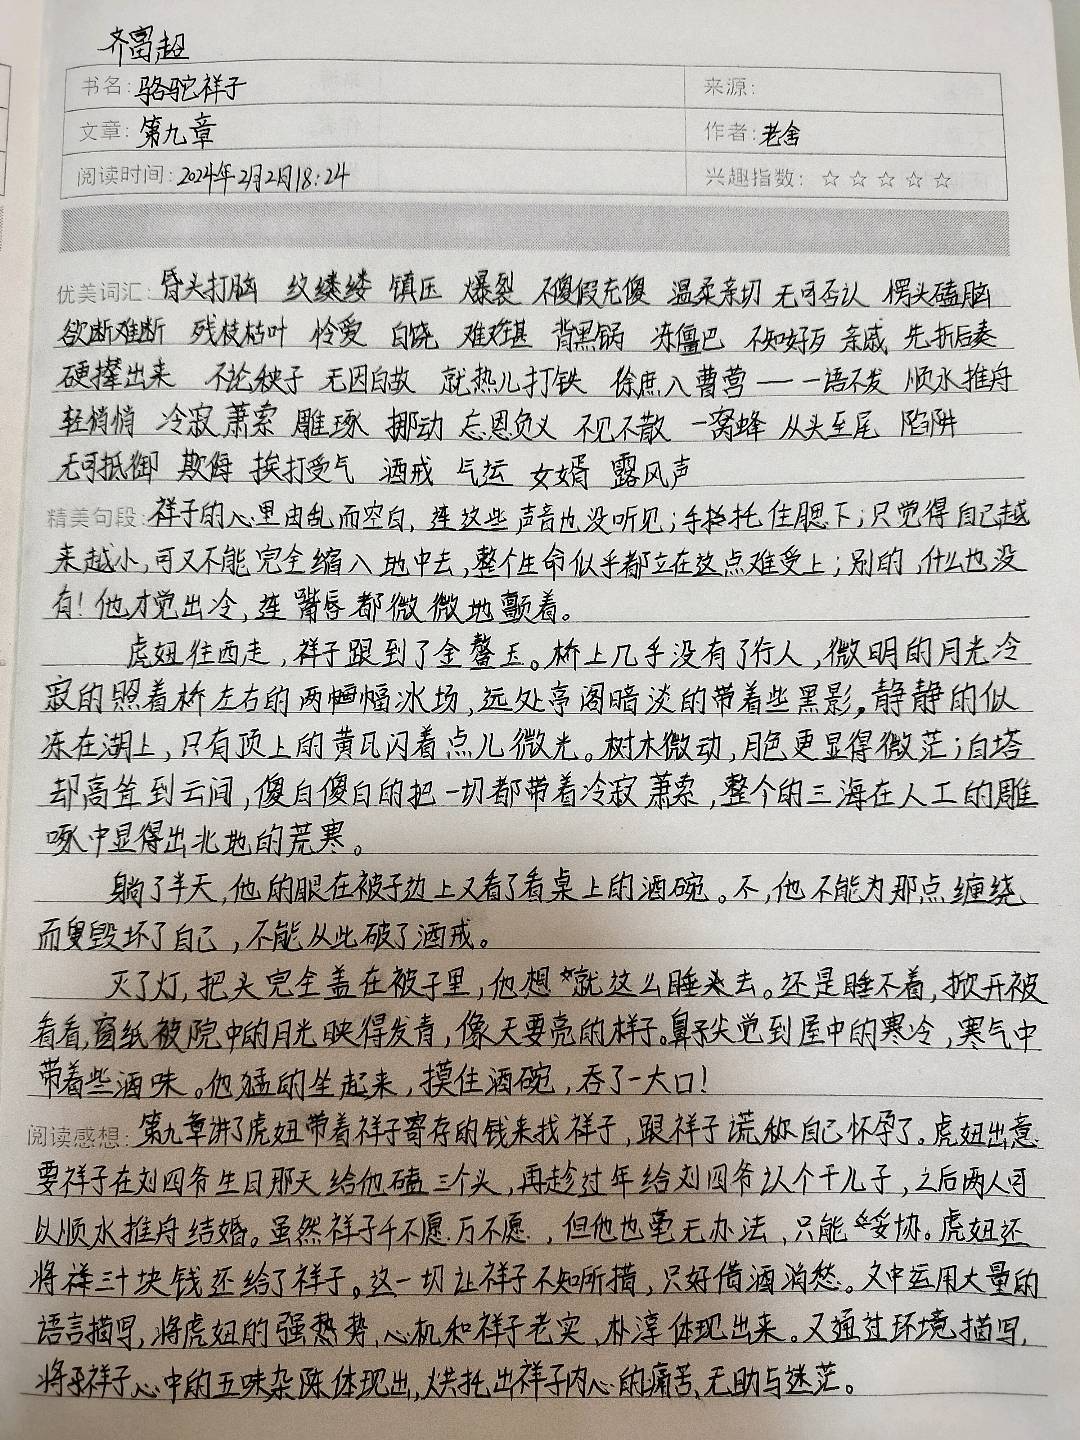 齐富超
书名: 骆驼祥子 来源:
文章: 第九章 作者: 老舍
阅读时间: 2024年2月2日18:24 兴趣指数: ☆☆☆☆☆
优美词汇: 昏头打脑 纹缕缕 镇压 爆裂 不傻假充傻 温柔亲切 无可否认 愣头磕脑
欲断难断 残枝枯叶 怜爱 白饶 难堪 背黑锅 冻僵巴 不知好歹 亲戚 先折后奏
硬撵出来 不论秧子 无因白故 就热儿打铁 徐庶入曹营——一语不发 顺水推舟
轻悄悄 冷寂萧索 雕琢 挪动 忘恩负义 不见不散 一窝蜂 从头至尾 陷阱
无可抵御 欺侮 挨打受气 酒戒 气运 女婿 露风声
精美句段: 祥子的心里由乱而空白，连这些声音也没听见；手托住腮下；只觉得自己越
来越小，可又不能完全缩入地中去，整个生命似乎都立在这点难受上；别的，什么也没
有！他才觉出冷，连嘴唇都微微地颤着。
虎妞往西走，祥子跟到了金鳌玉。桥上几乎没有了行人，微明的月光冷
寂的照着桥左右的两幅冰场，远处亭阁暗淡的带着些黑影，静静的似
冻在湖上，只有顶上的黄瓦闪着点儿微光。树木微动，月色更显得微茫；白塔
却高耸到云间，傻白傻白的把一切都带着冷寂萧索，整个的三海在人工的雕
啄中显得出北地的荒寒。
躺了半天，他的眼在被子边上又看了看桌上的酒碗。不，他不能为那点缠绕
而毁坏了自己，不能从此破了酒戒。
灭了灯，把头完全盖在被子里，他想就这么睡去。还是睡不着，掀开被
看看，窗纸被院中的月光映得发青，像天要亮的样子。鼻尖觉到屋中的寒冷，寒气中
带着些酒味。他猛的坐起来，摸住酒碗，吞了一大口！
阅读感想: 第九章讲了虎妞带着祥子寄存的钱来找祥子，跟祥子谎称自己怀孕了。虎妞出意
要祥子在刘四爷生日那天给他磕三个头，再趁过年给刘四爷认个干儿子，之后两人可
以顺水推舟结婚。虽然祥子千不愿万不愿，但他也毫无办法，只能妥协。虎妞还
将三十块钱还给了祥子。这一切让祥子不知所措，只好借酒消愁。文中运用大量的
语言描写，将虎妞的强势、心机和祥子老实、朴淳体现出来。又通过环境描写，
将祥子心中的五味杂陈体现出，烘托出祥子内心的痛苦、无助与迷茫。